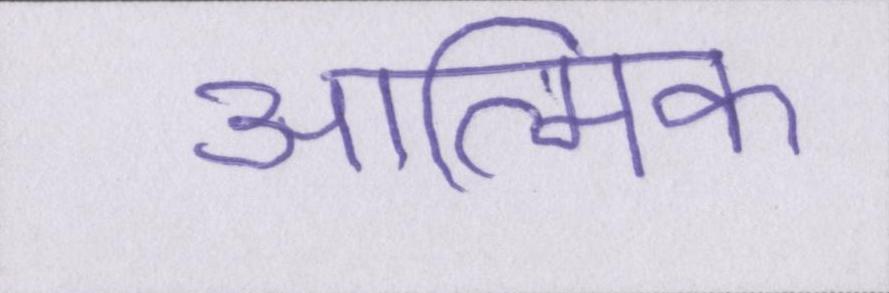 आत्मिक